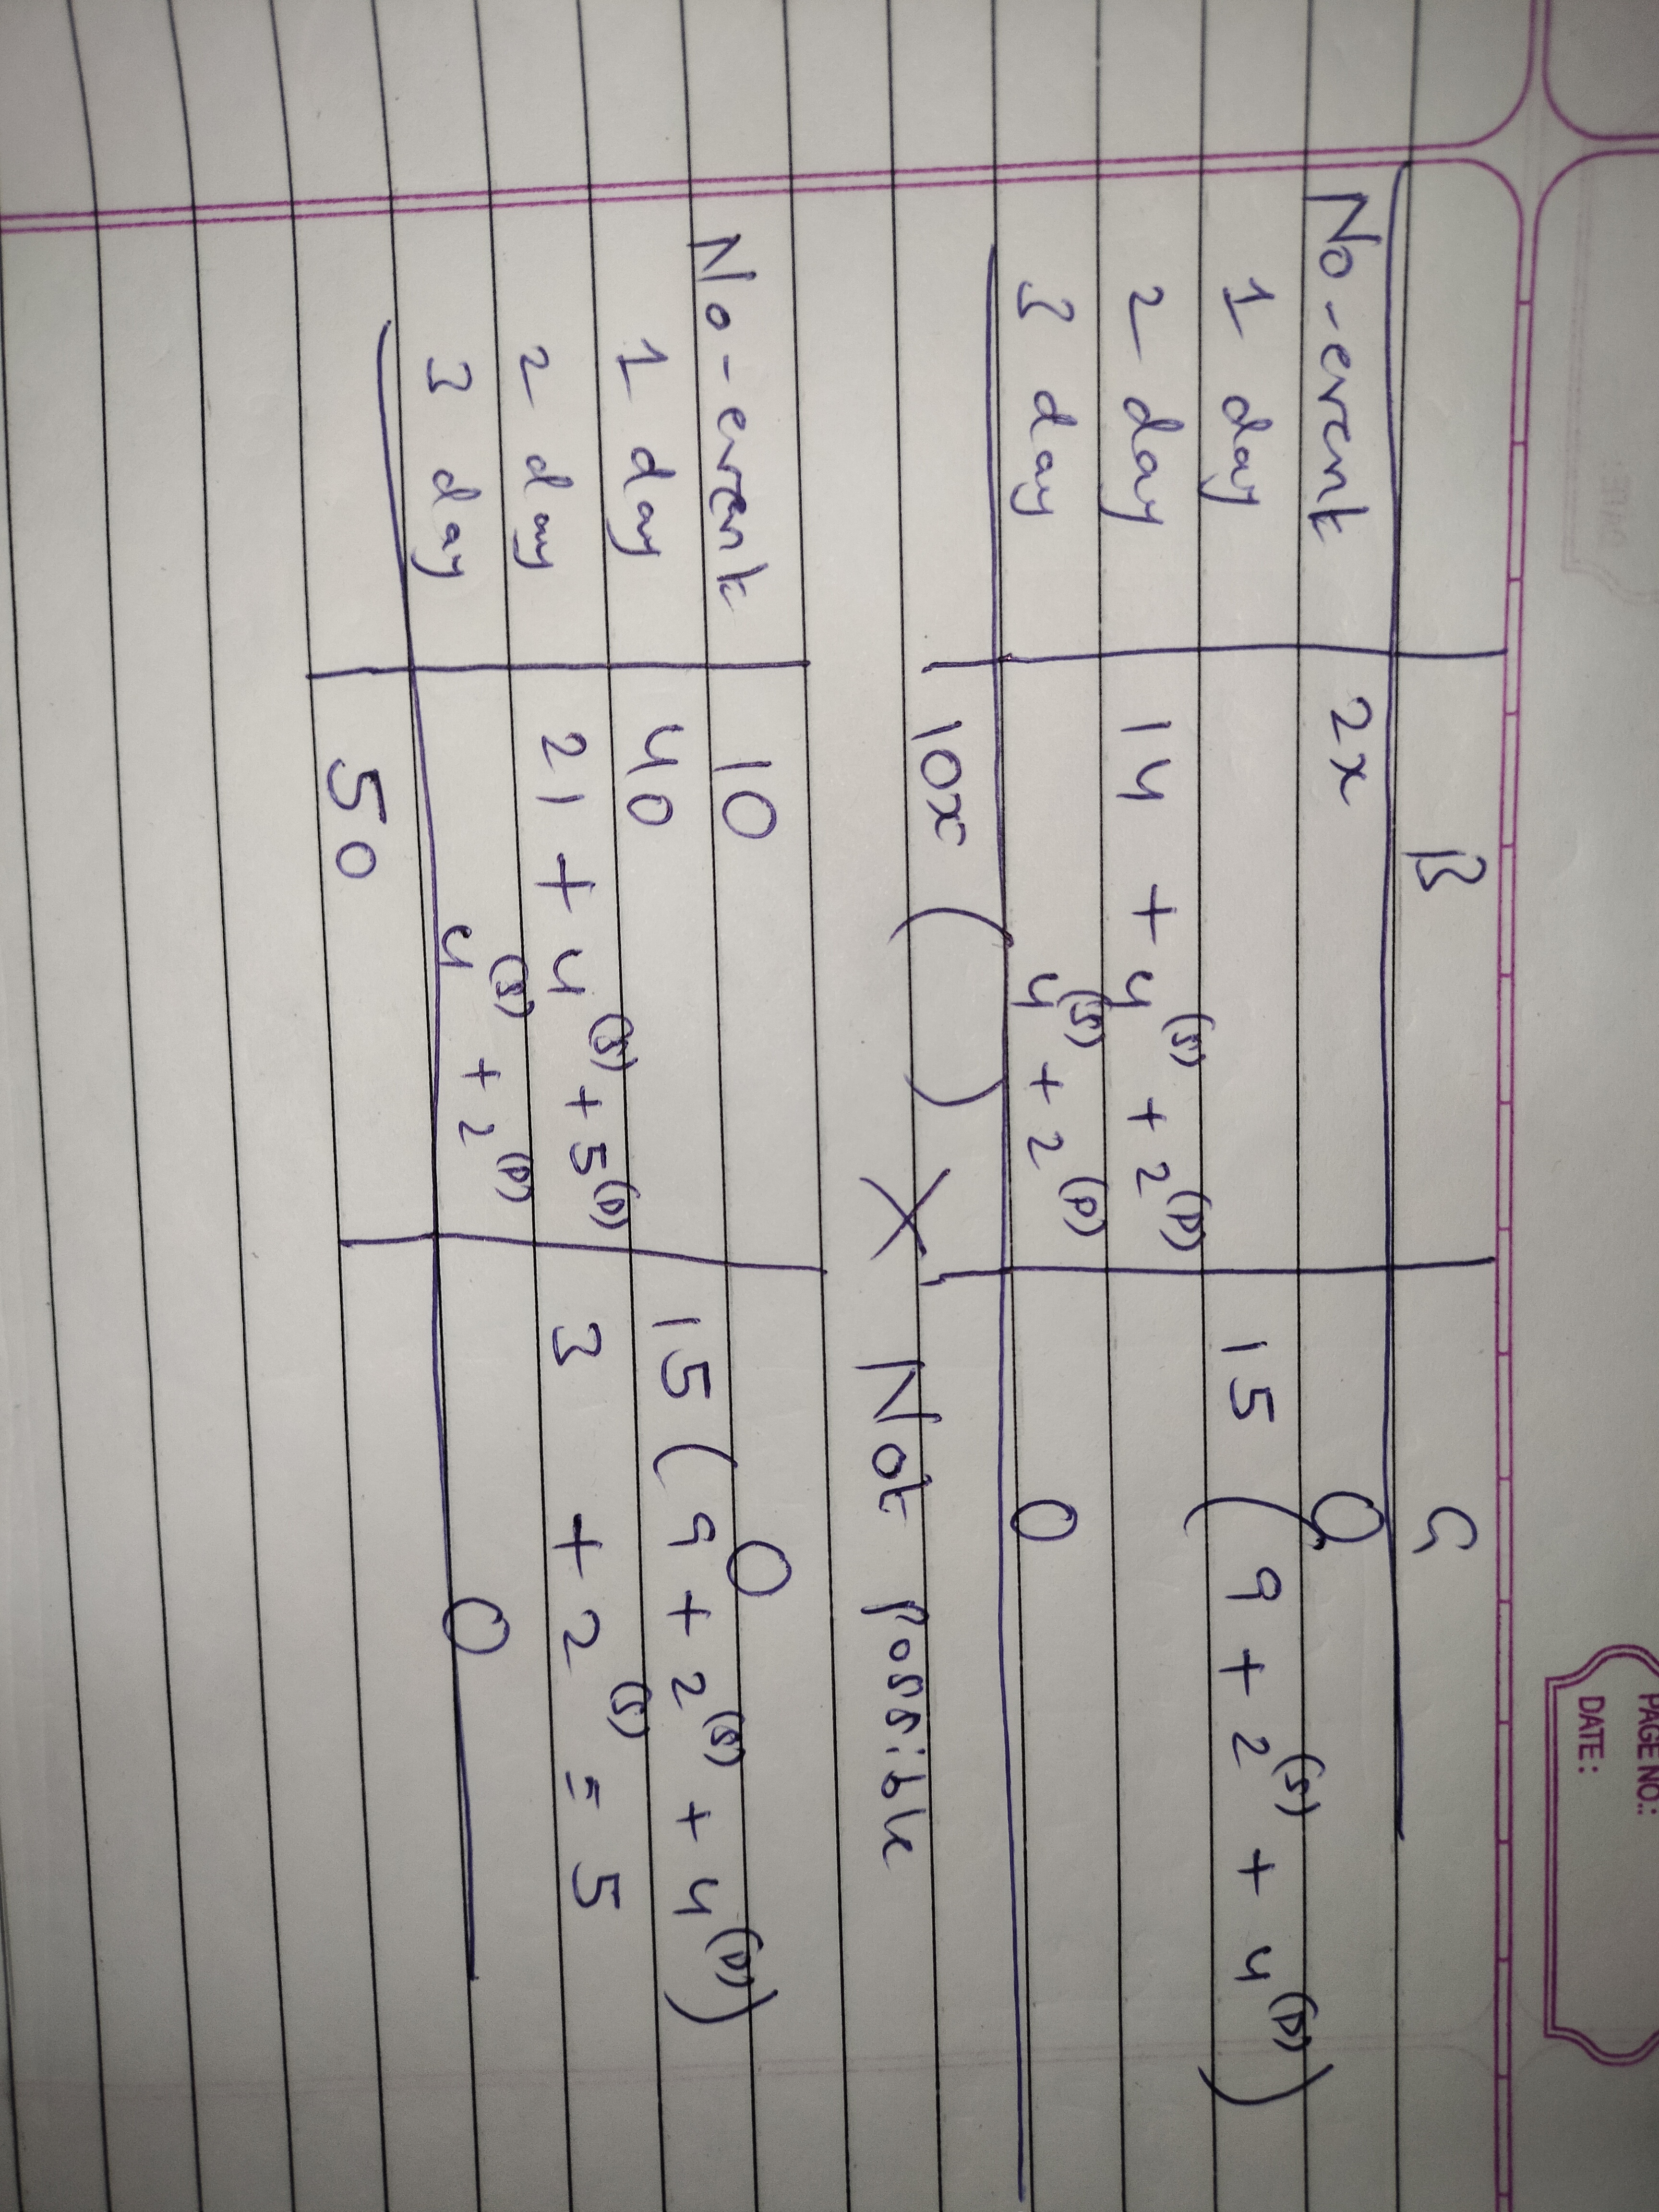 PAGE NO.:
DATE:
B G
No-event 2x 0
1 day 15 (9 + 2(S) + 4(D))
2 day 14 + 4(S) + 2(D)
3 day 4(S) + 2(D) 0
10x ( ) X Not possible
No-event 10 0
1 day 40 15 (9 + 2(S) + 4(D))
2 day 21 + 4(S) + 5(D) 3 + 2(S) = 5
3 day 4(S) + 2(D) 0
50